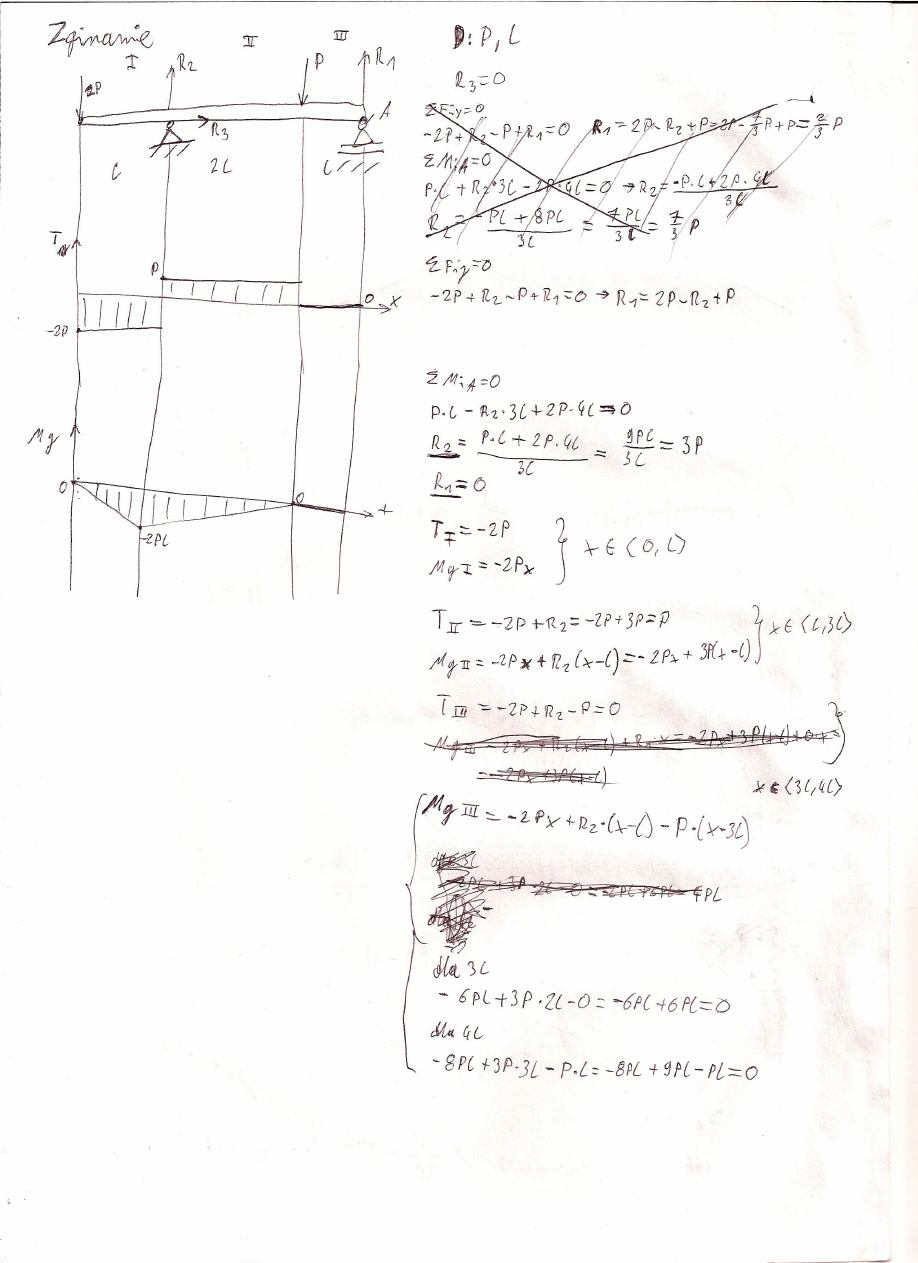 Zginanie
I II III
2P R₂ P R₁
A
R₃
l 2l l
T
P
0 x
-2P
Mg
0 0 x
-2Pl
D: P, l
R₃=0
ΣFiy=0
-2P+R₂-P+R₁=0 R₁=2P-R₂+P=2P-7/3P+P=2/3P
ΣMiA=0
P·l+R₂·3l-2P·4l=0 → R₂=(-P·l+2P·4l)/3l
R₂=(-Pl+8Pl)/3l=7Pl/3l=7/3P
ΣFiy=0
-2P+R₂-P+R₁=0 → R₁=2P-R₂+P
ΣMiA=0
P·l-R₂·3l+2P·4l=0
R₂=(P·l+2P·4l)/3l=9Pl/3l=3P
R₁=0
T I=-2P
Mg I=-2Px } x∈⟨0,l⟩
T II=-2P+R₂=-2P+3P=P
Mg II=-2Px+R₂(x-l)=-2Px+3P(x-l) } x∈⟨l,3l⟩
T III=-2P+R₂-P=0
x∈⟨3l,4l⟩
Mg III=-2Px+R₂·(x-l)-P·(x-3l)
dla 3l
-6Pl+3P·2l-0=-6Pl+6Pl=0
dla 4l
-8Pl+3P·3l-P·l=-8Pl+9Pl-Pl=0